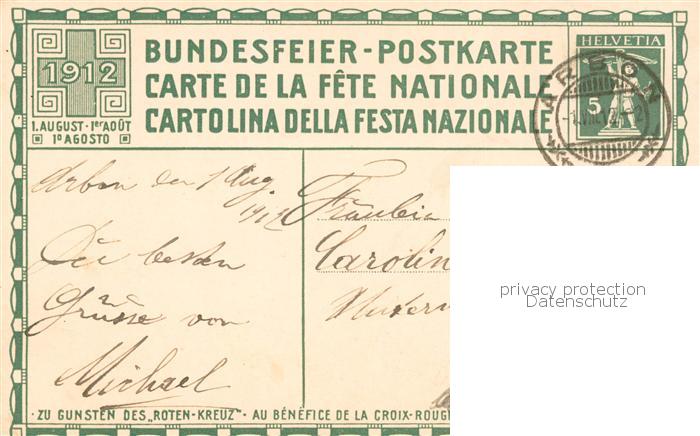 BUNDESFEIER-POSTKARTE
CARTE DE LA FÊTE NATIONALE
CARTOLINA DELLA FESTA NAZIONAL
1912
1. AUGUST · 1ER AOÛT
1º AGOSTO
HELVETIA
5
ARBON
Arbon den 1 Aug.
1912
Die besten
Grüsse von
Michael
Fräulein
Carolin
privacy protection
Datenschutz
ZU GUNSTEN DES „ROTEN-KREUZ" · AU BÉNÉFICE DE LA CROIX-ROUG